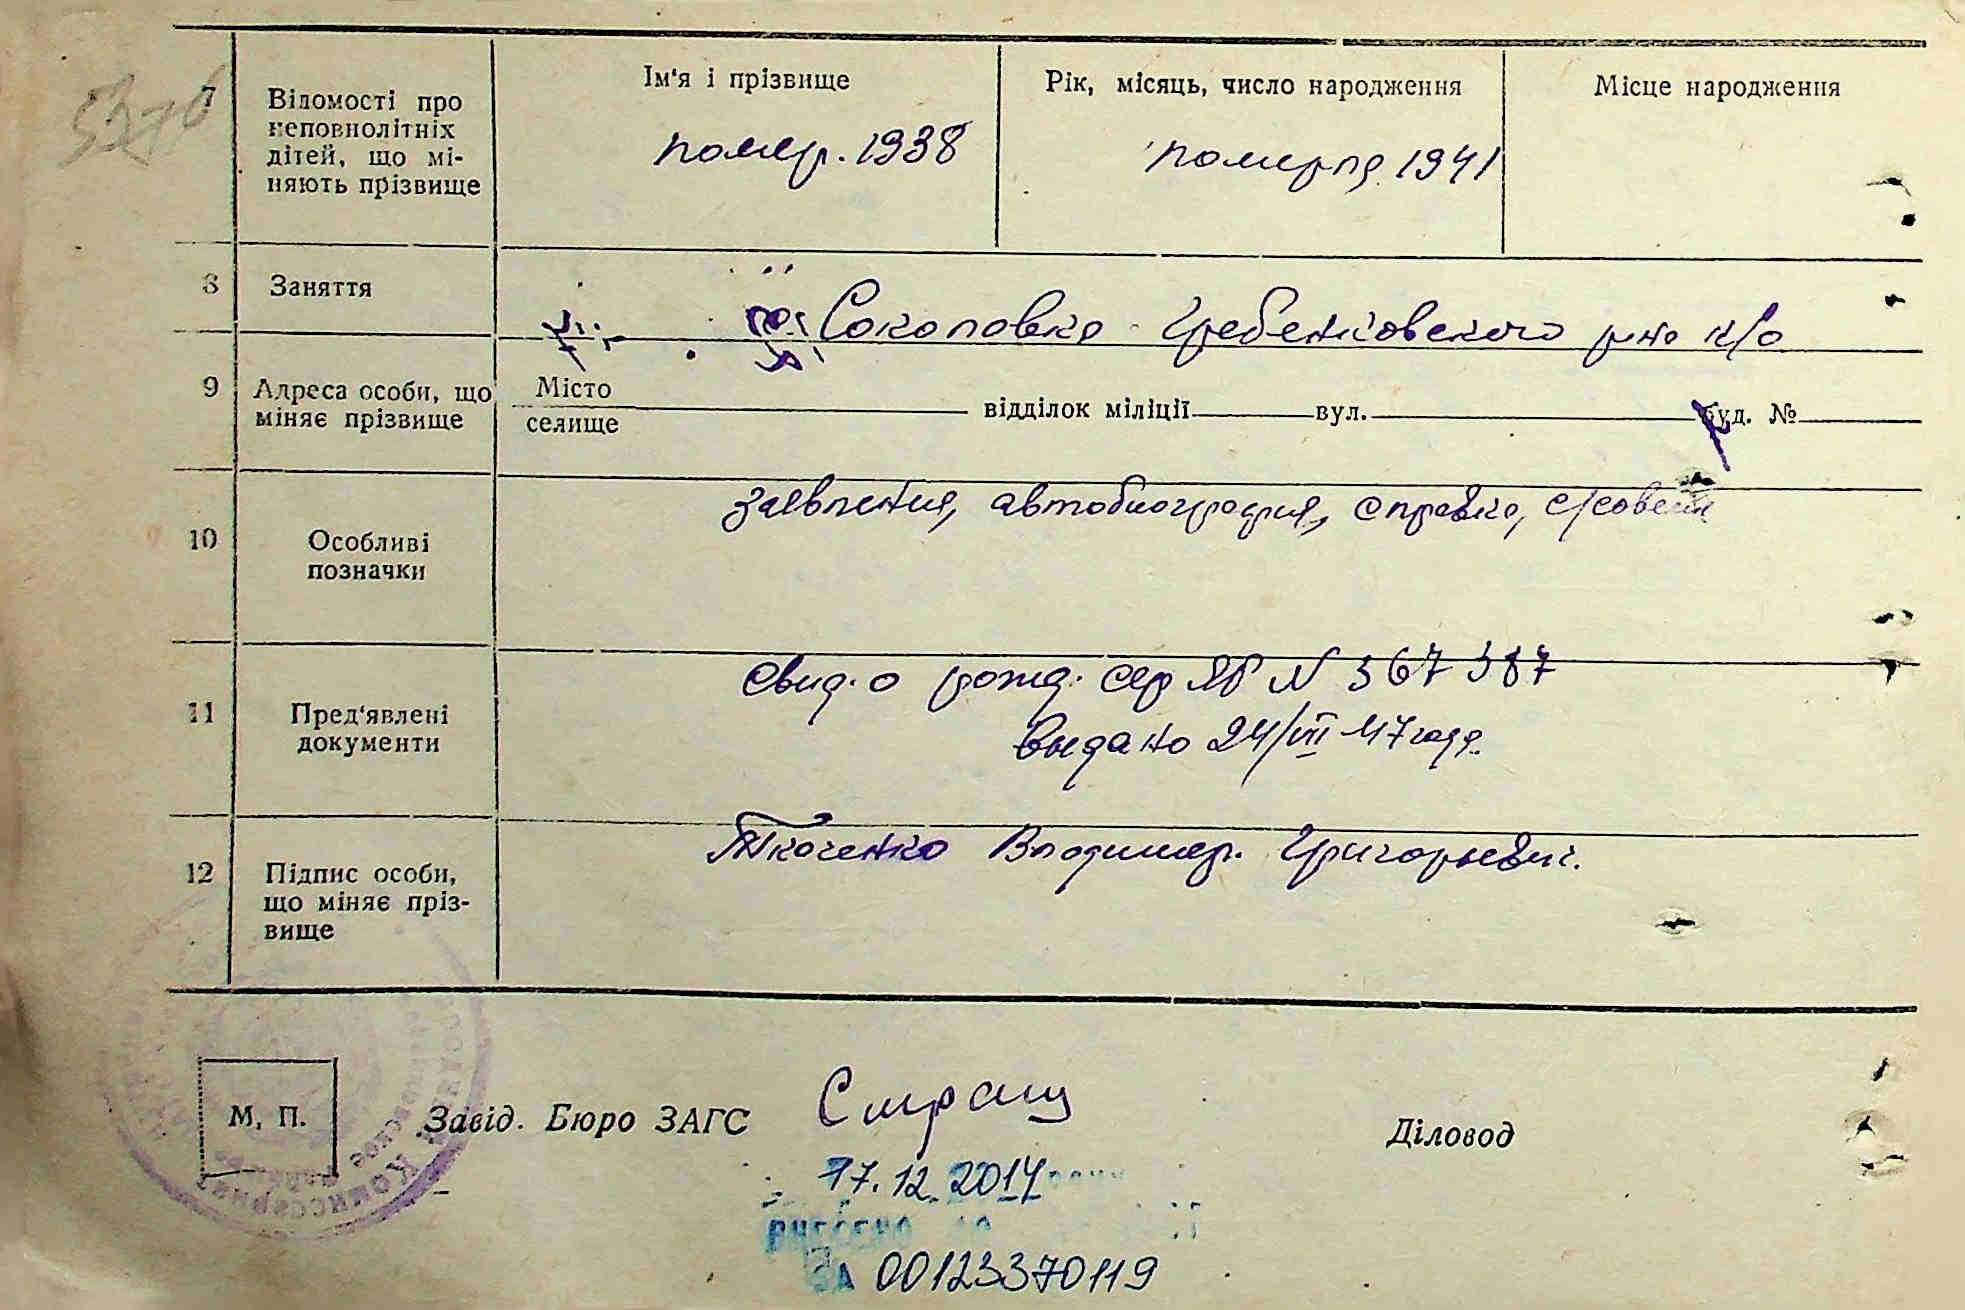 5376
7
Відомості про
неповнолітніх
дітей, що мі-
няють прізвище
Ім'я і прізвище
Рік, місяць, число народження
Місце народження
помер. 1938
померла 1941
8
Заняття
Соколовка Гребенковского р-на к/о
9
Адреса особи, що
міняє прізвище
Місто
селище
відділок міліції
вул.
буд. №
10
Особливі
позначки
заявления, автобиография, справка, с/совета
11
Пред'явлені
документи
свид. о рожд. сер ЯР N 367387
выдано 24/VII 47 года
12
Підпис особи,
що міняє пріз-
вище
Ткаченко Владимир. Григорьевич.
М, П.
Завід. Бюро ЗАГС
Діловод
17.12.2014 року
ВНЕСЕНО ДО
ЗА 00123370119